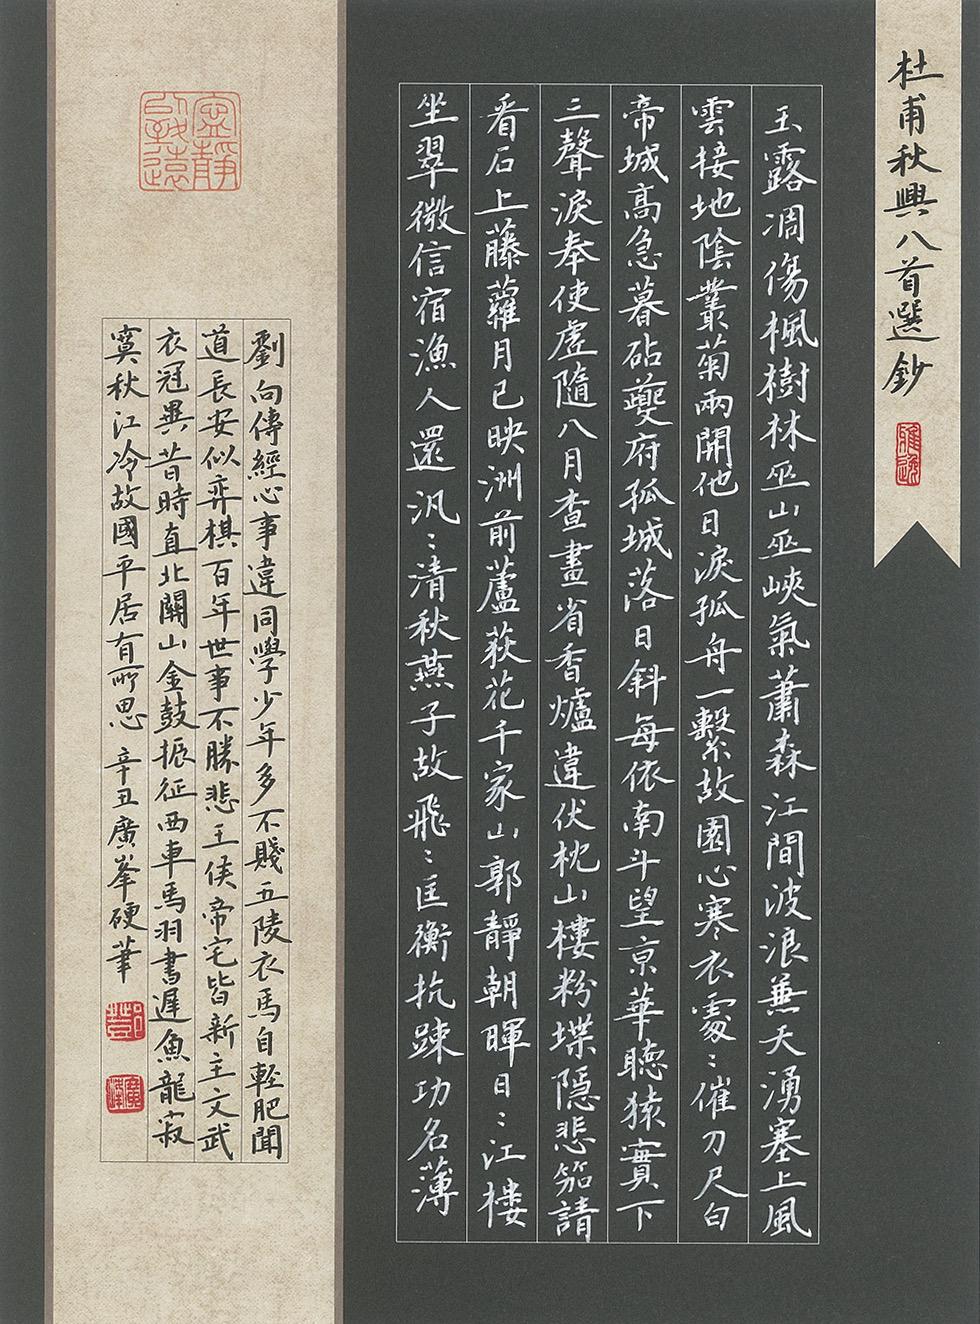 杜甫秋興八首選鈔
雅逸
玉露凋傷楓樹林巫山巫峽氣蕭森江間波浪兼天湧塞上風
雲接地陰叢菊兩開他日淚孤舟一繫故園心寒衣處〻催刀尺白
帝城高急暮砧夔府孤城落日斜每依南斗望京華聽猿實下
三聲淚奉使虛隨八月查畫省香爐違伏枕山樓粉堞隱悲笳請
看石上藤蘿月已映洲前蘆荻花千家山郭靜朝暉日〻江樓
坐翠微信宿漁人還汎〻清秋燕子故飛〻匡衡抗疎功名薄
寧靜致遠
劉向傳經心事違同學少年多不賤五陵衣馬自輕肥聞
道長安似弈棋百年世事不勝悲王侯帝宅皆新主文武
衣冠異昔時直北關山金鼓振征西車馬羽書遲魚龍寂
寞秋江冷故國平居有所思 辛丑廣峯硬筆